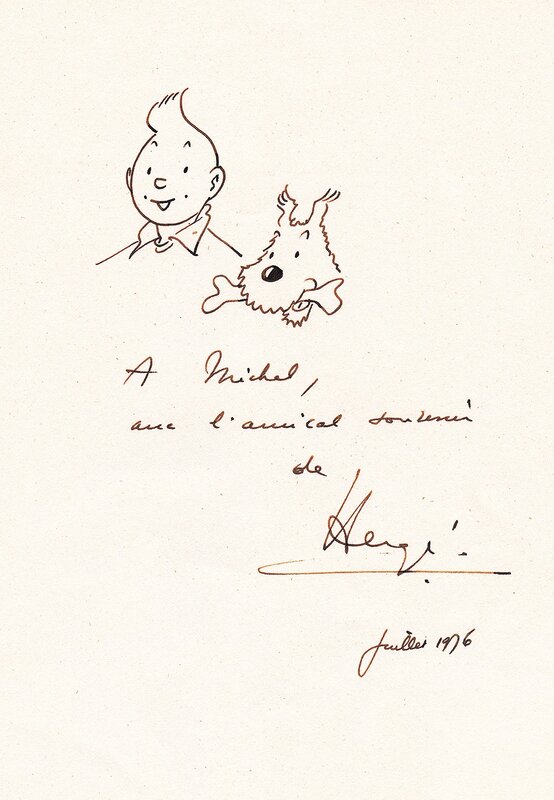 A Michel,
avec l'amical souvenir
de
Hergé.
Juillet 1976